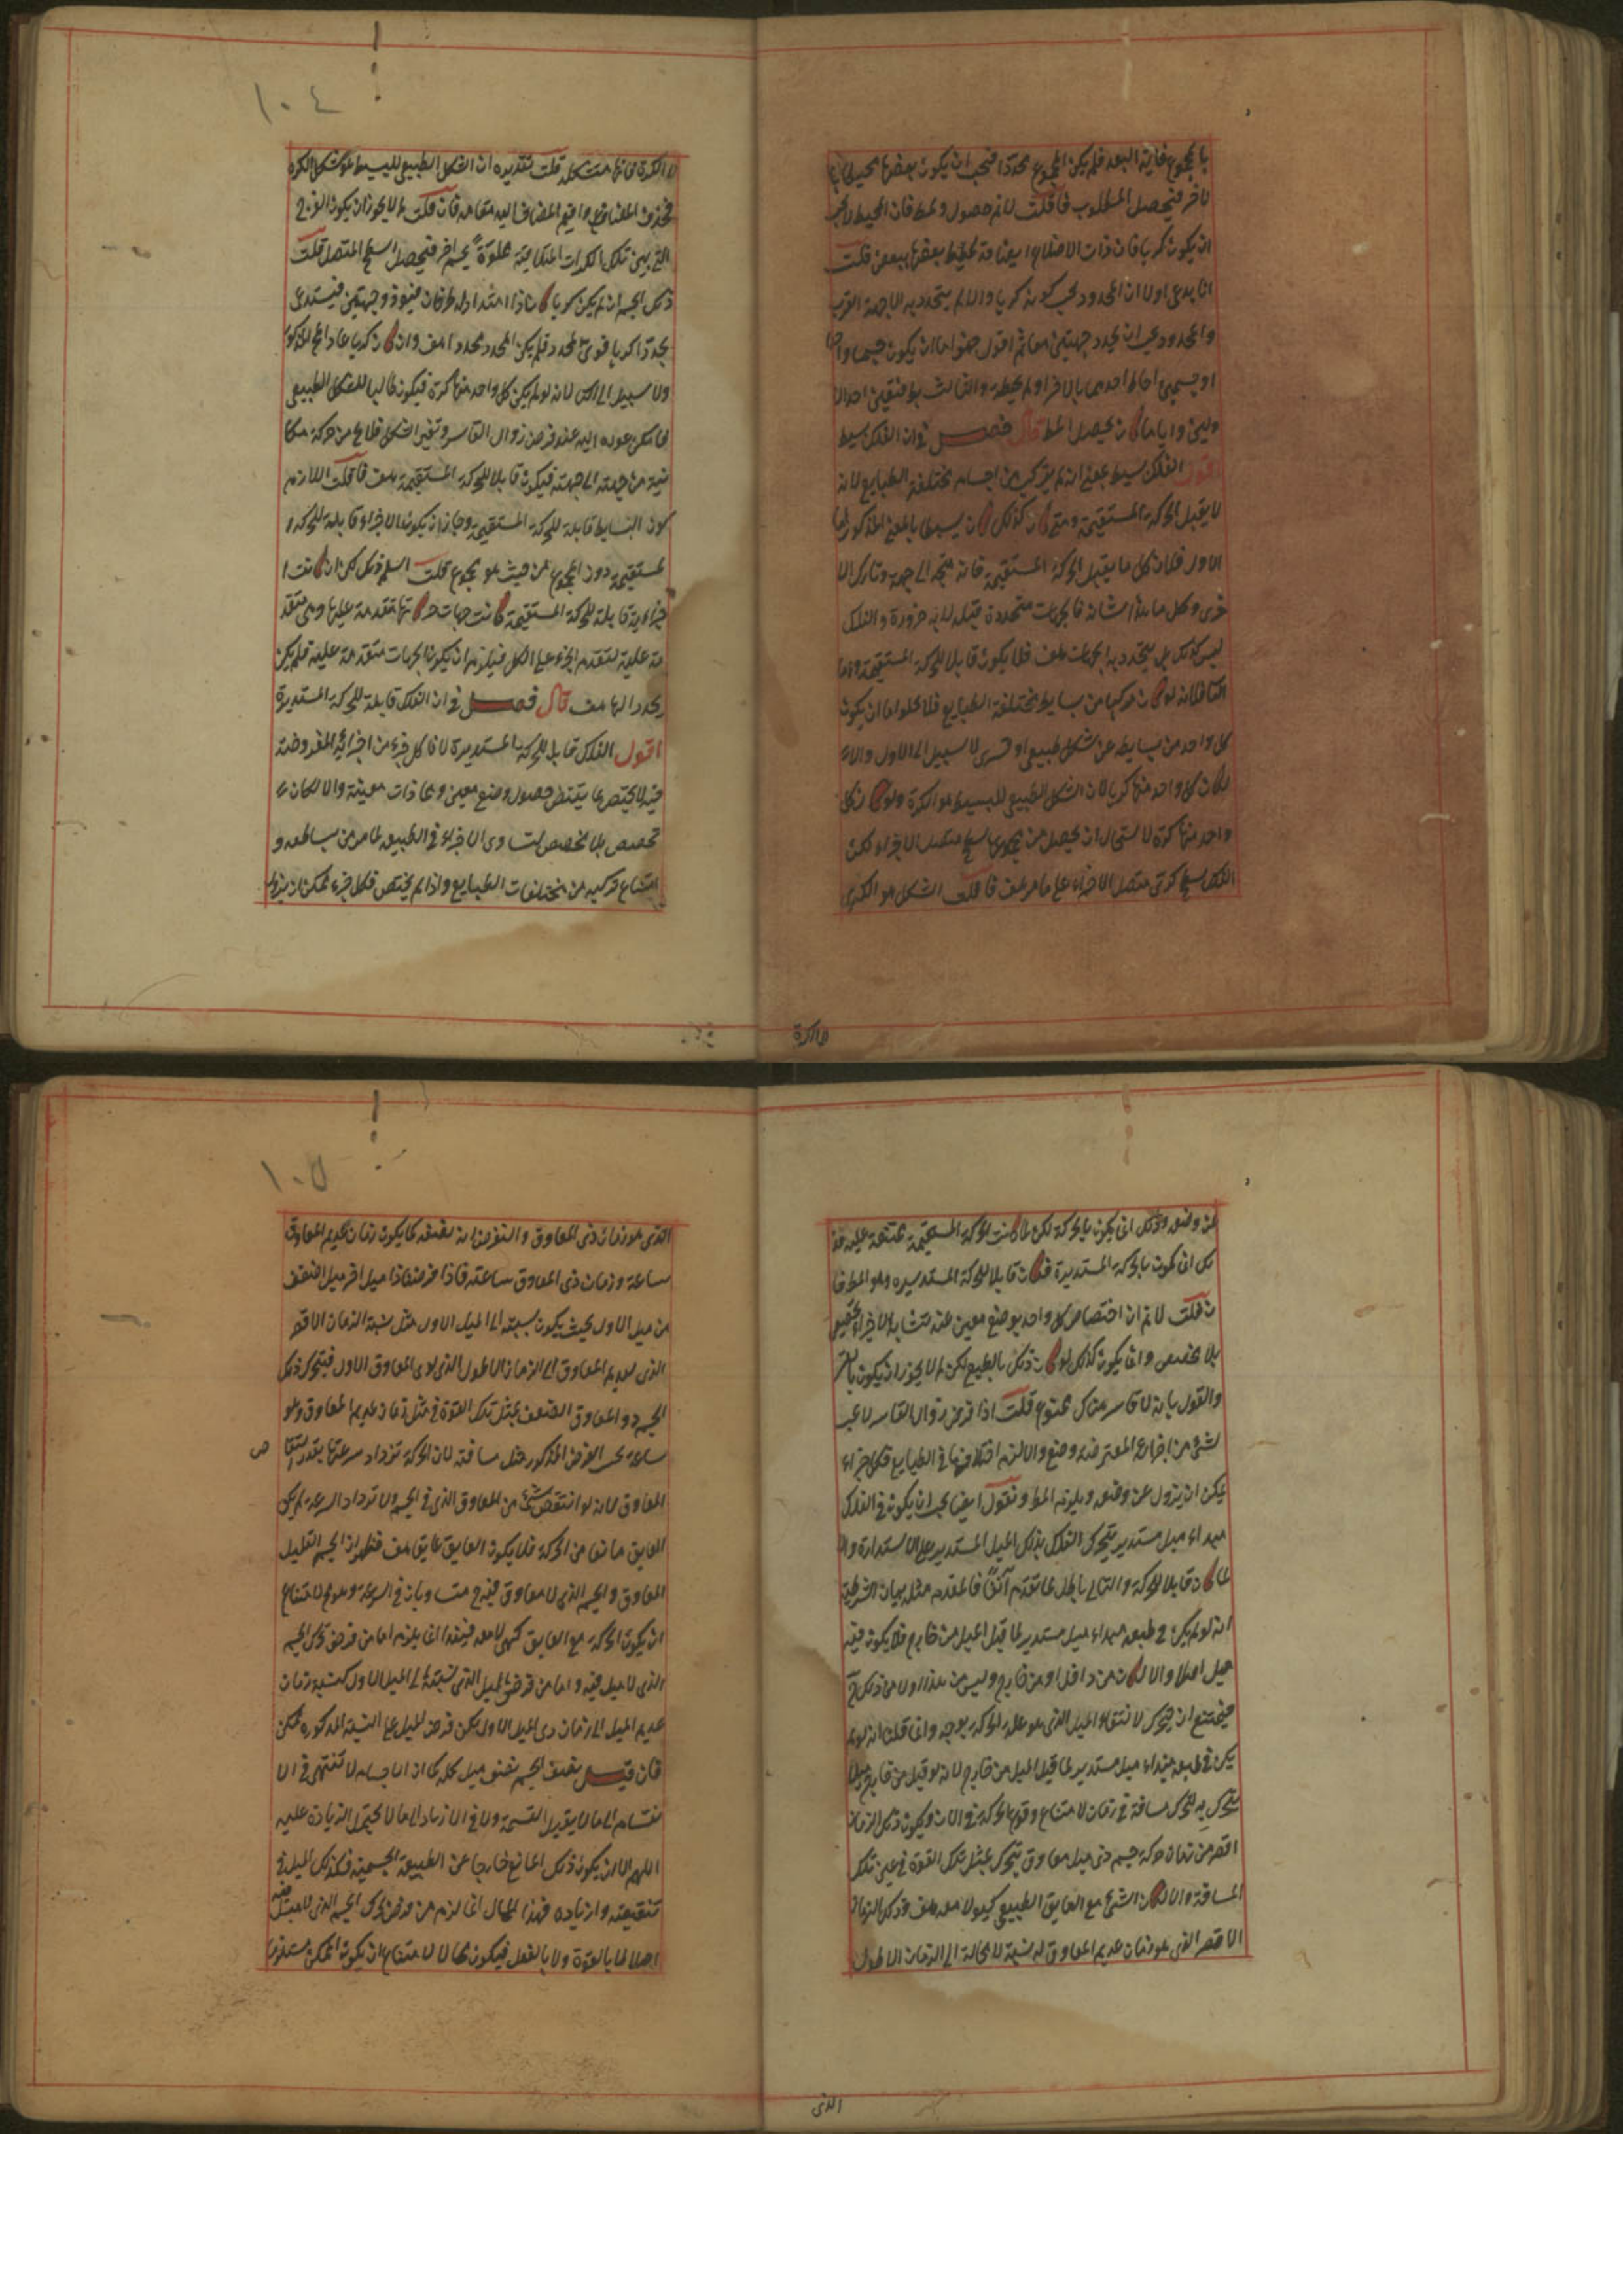 بالمجموع غاية البعد فلم يكن المجموع محددا فيجب ان يكون بعضها محيطا با
لاخر فيحصل المطلوب فان قلت لانم حصول وسط فان المحيط لا يجب
ان يكون كريا فان ذات الاضلاع ايضا قد يحيط بعضها ببعض قلت
انا ندعى اولا ان المحدد يجب كونه كريا والا لم يتحدد به الا جهة القرب
والمحدد يجب ان يحدد جهتين معا ثم اقول هو اما ان يكون جسما واحدا
او جسمين احاط احدهما بالاخر او لم يحط والثالث بط فتعين احد الا
ولين وايا ما كان يحصل المط قال فصل في ان الفلك بسيط
اقول الفلك بسيط بمعنى انه لم يتركب من اجسام مختلفة الطبايع لانه
لا يقبل الحركة المستقيمة ومتى كان كذلك كان بسيطا بالمعنى المذكور اما
الاول فلان كل ما يقبل الحركة المستقيمة فانه متجه الى جهة وتارك الا
خرى وكل ما هذا شانه فالجهات متحددة قبله لا به ضرورة والفلك
ليس كذلك بل يتحدد به الجهات هف فلا يكون قابلا للحركة المستقيمة واما
الثاني فلانه لو كان مركبا من بسايط مختلفة الطبايع فلا يخلو اما ان يكون
كل واحد من بسايطه على شكل طبيعي او قسرى لا سبيل الى الاول والا
لكان كل واحد منها كريا لان الشكل الطبيعي للبسيط هو الكرة ولو كان كل
واحد منها كرة لاستحال ان يحصل من مجموعها سطح متصل الاجزاء لكن
الفلك سطح كرى متصل الاجزاء على ما مر هف فان قلت الشكل هو الكرى
لا الكرة
لا الكرة فانها متشكلة قلت تقديره ان الشكل الطبيعي للبسيط هو شكل الكرة
فحذف المضاف واقيم المضاف اليه مقامه فان قلت لم لا يجوز ان يكون الفرج
التي بين تلك الكرات المتلاقية مملوة بجسم اخر فيحصل السطح المتصل قلت
ذلك الجسم ان لم يكن كريا كان اذا امتد اد له طرفان فهو ذو جهتين فيستدعى
محددا كريا فوق المحدد فلم يكن المحدد محددا هف وان كان كريا عاد المحال المذكور
ولا سبيل الى الثاني لانه لو لم يكن كل واحد منها كرة فيكون طالبا للشكل الطبيعي
فامكن عوده اليه عند فرض زوال القاسر وتغير الشكل فلا يخ من حركة مكا
نية من جهة الى جهة فيكون قابلا للحركة المستقيمة هف فان قلت اللازم
كون البسايط قابلة للحركة المستقيمة وجاز ان يكون الاجزاء قابلة للحركة ا
لمستقيمة دون المجموع من حيث هو مجموع قلت اسلم ذلك لكن ان كانت ا
جزاءه قابلة للحركة المستقيمة كانت جهات حركاتها متقدمة عليها وهى متقد
مة عليه لتقدم الجزء على الكل فيلزم ان يكون الجهات متقدمة عليه فلم يكن
محددا لها هف قال فصل في ان الفلك قابلة للحركة المستديرة
اقول الفلك قابل للحركة المستديرة لان كل جزء من اجزائه المفروضة
فيه لا يختص بما يقتضى حصول وضع معين ومحاذات معينة والا لكان
تخصيص بلا مخصص لتساوى الاجزاء في الطبيعة لما مر من بساطته و
امتناع تركيبه من مختلفات الطبايع واذا لم يختص فكل جزء يمكن ان يزول
عن وضعه وذلك انما يكون بالحركة لكن لما كانت الحركة المستقيمة ممتنعة عليه فذ
لك انما يكون بالحركة المستديرة فكان قابلا للحركة المستديره وهو المط فا
ن قلت لا نم ان اختصاص كل واحد بوضع معين عند تشابه الاجزاء تخصيص
بلا مخصص وانما يكون كذلك لو كان ذلك بالطبع لكن لم لا يجوز ان يكون بالقسر
والقول بانه لا قاسر هناك ممنوع قلت اذا فرض زوال القاسر لا يجب
لشئ من اجزاءه المفترضة وضع والا لزم اختلافها في الطبايع فكل جزء
يمكن ان يزول عن وضعه ويلزم المط ونقول ايض يجب ان يكون في الفلك
مبداء ميل مستدير يتحرك الفلك بذلك الميل المستدير على الاستدارة والا
لما كان قابلا للحركة والتالى باطل لما تقدم آنفا فالمقدم مثله بيان الشرطية
انه لو لم يكن في طبعه مبداء ميل مستدير لما قبل الميل من خارج فلا يكون فيه
ميل اصلا والا لكان من داخل او من خارج وليس من هذا ولا من ذلك
فيمتنع ان يتحرك لانتفاء الميل الذى هو علة الحركة بوجه وانما قلنا انه لو لم
يكن في طبعه مبداء ميل مستدير لما قبل الميل من خارج لانه لو قبل من خارج ميلا
يتحرك به لتحرك مسافة في زمان لامتناع وقوع الحركة في الان ويكون ذلك الزمان
اقصر من زمان حركة جسم ذى ميل معاوق يتحرك بمثل تلك القوة في عين تلك
المسافة والا لكان الشئ مع العايق الطبيعي كهو لا معه هف وذلك الزمان
الاقصر الذى هو زمان عديم المعاوق له نسبة لا محالة الى الزمان الاطول
الذى
الذى هو زمان ذى المعاوق والنفرض انه نصفه كما يكون زمان عديم المعاوق
ساعة وزمان ذى المعاوق ساعتة فاذا فرضنا ذا ميل اخر ميل اضعف
من ميل الاول بحيث يكون نسبته الى الميل الاول مثل نسبة الزمان الاقصر
الذى لعديم المعاوق الى الزمان الاطول الذى لذى المعاوق الاول فيتحرك ذلك
الجسم ذو المعاوق الضعف بمثل تلك القوة في مثل زمان عديم المعاوق وهو
ساعة بحسب الفرض المذكور مثل مسافته لان الحركة تزداد سرعتها بقدر انتقا
ص
المعاوق لانه لو انتقص شئ من المعاوق الذى في الجسم ولا تزداد السرعة لم يكن
العايق مانعا من الحركة فلا يكون العايق عايق هف فظهر ان الجسم القليل
المعاوق والجسم الذى لا معاوق فيه متساويان في السرعة وهو مح لامتناع
ان يكون الحركة مع العايق كهى لا معه فهذا انما يلزم اما من فرض تحرك الجسم
الذى لا ميل فيه واما من فرض الميل الذى نسبته الى الميل الاول كنسبة زمان
عديم الميل الى زمان ذى الميل الاول لكن فرض الميل على النسبة المذكوره ممكن
فان قيل نصف الجسم نصف ميل كله كما ان الاجسام لا تنتهى في الا
نقسام الى ما لا يقبل القسمة ولا في الازدياد الى ما لا يحتمل الزيادة عليه
اللهم الا ان يكون ذلك المانع خارجا عن الطبيعة الجسمية فكذلك الميل في
تنقيصه وازدياده فهذا المحال انما لزم من فرض تحرك الجسم الذى لا ميل فيه
اصلا لا بالقوة ولا بالفعل فيكون محالا لامتناع ان يكون الممكن مستلزما
١٠٤
١٠٥